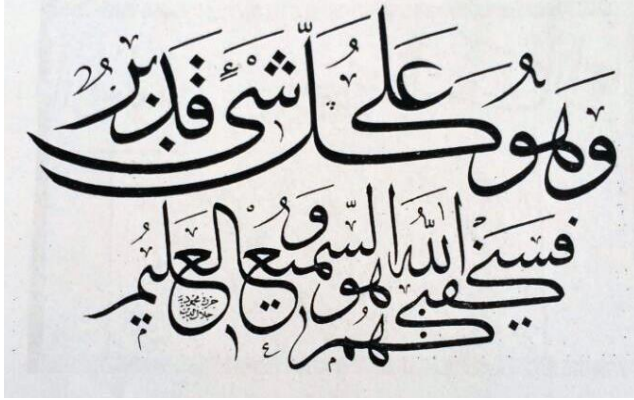 وهو على كل شئ قدير
فسيكفيكهم الله وهو السميع العليم